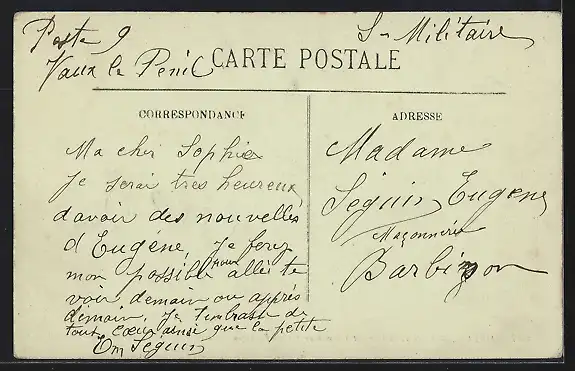 Poste 9
Vaux le Penil
S - Militaire
CARTE POSTALE
CORRESPONDANCE
ADRESSE
Ma cher Sophie
Je serai tres heureux
davoir des nouvelles
d'Eugéne, Je feray
mon possible pour allée te
voir demain ou apprés
demain. Je t'embrasse de
tout cœur ainsi que la petite
Em Seguin
Madame
Séguin Eugene
Maçonnerie
Barbizon